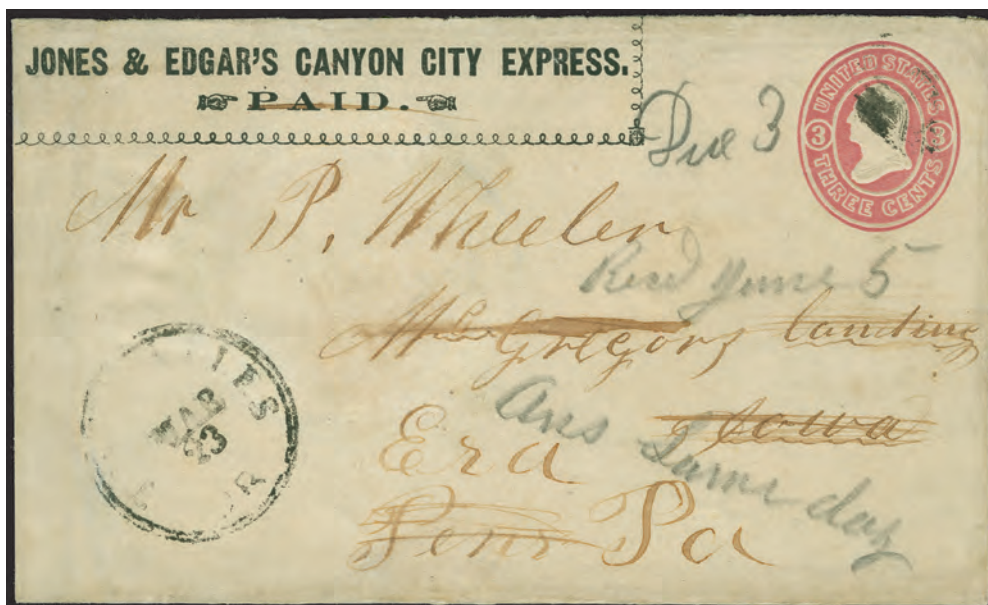 JONES & EDGAR'S CANYON CITY EXPRESS.
PAID.
Due 3
UNITED STATES
3 3
THREE CENTS
Mr P. Wheeler
Recd June 5
McGregors landing
Iowa
Ans Same day
Era
Penn Pa
MAR
23